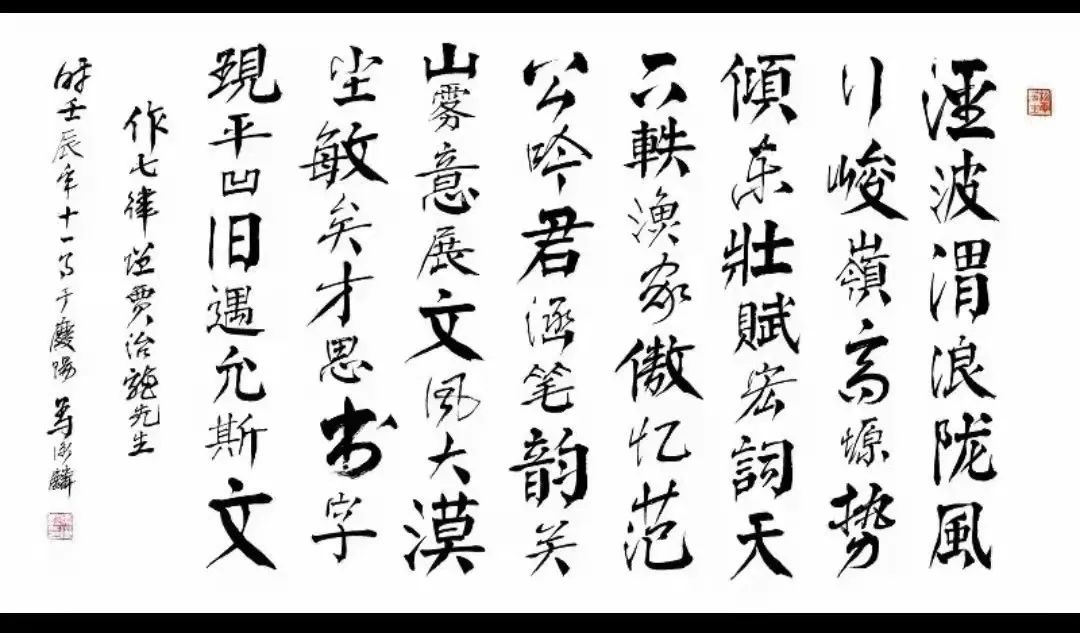 涇波渭浪陇風
行峻嶺高塬势
傾东壯賦宏詞天
下軼渔家傲忆范
公吟君涵笔韵关
山雾意展文风大漠
尘敏矣才思书字
現平凹旧遇允斯文
作七律 贾治龍先生
时壬辰年十一月于慶陽 麟